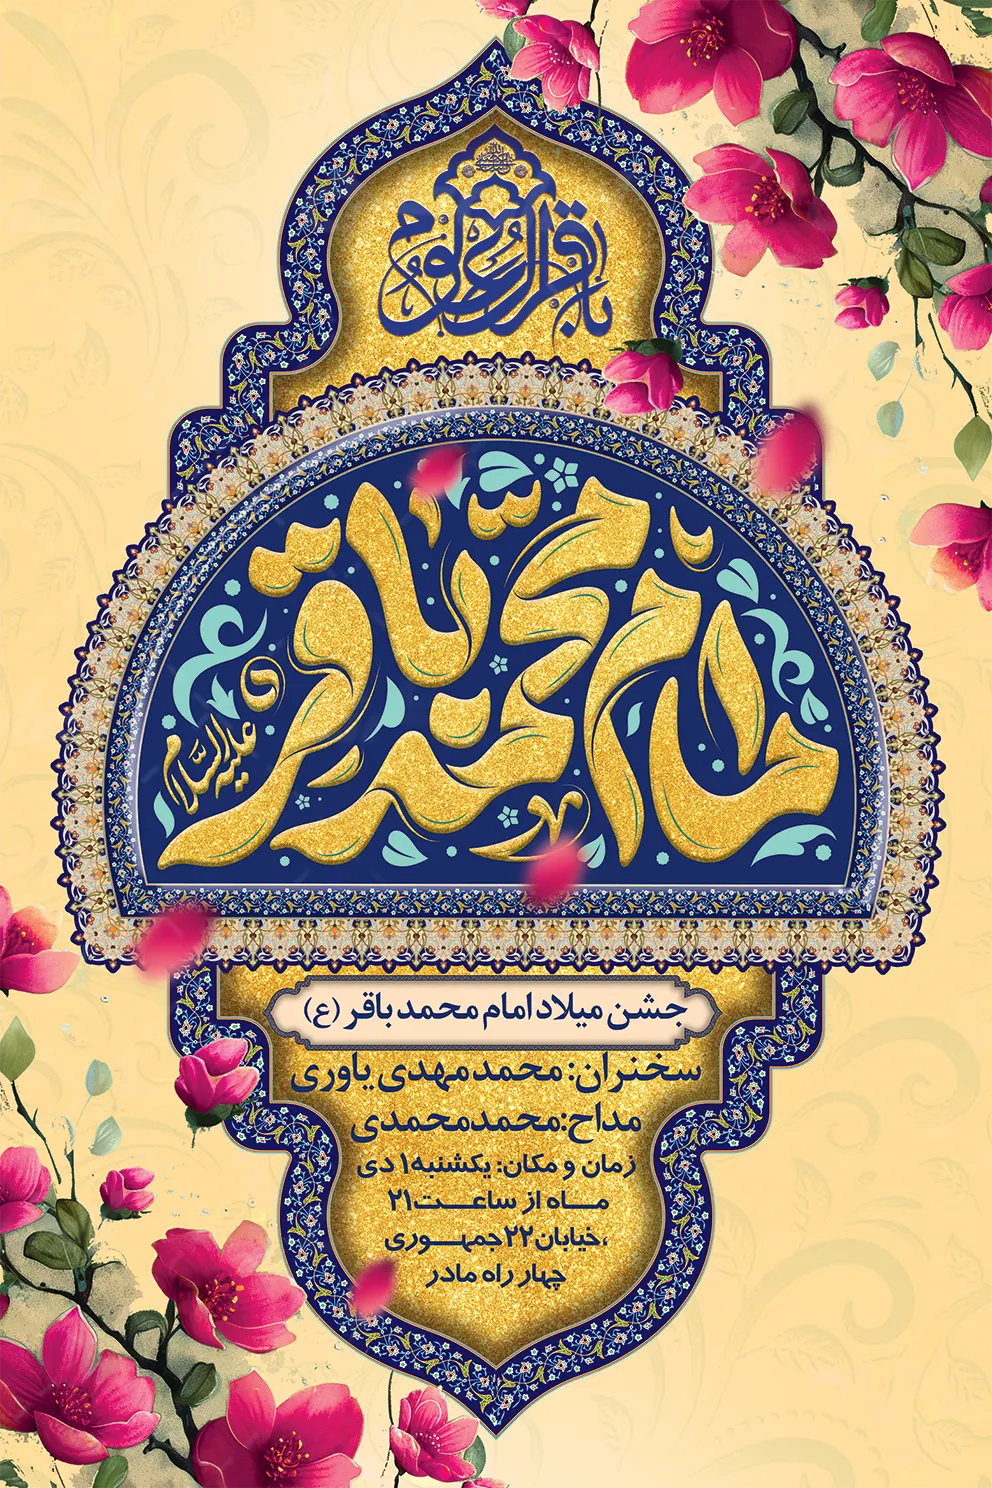 باقرالعلوم
امام محمد باقر
علیه السلام
جشن میلاد امام محمد باقر (ع)
سخنران: محمدمهدی یاوری
مداح:محمدمحمدی
زمان و مکان: یکشنبه ۱ دی
مـــاه از ساعـــت۲۱
،خیابان۲۲جمهـــوری
چهار راه مادر